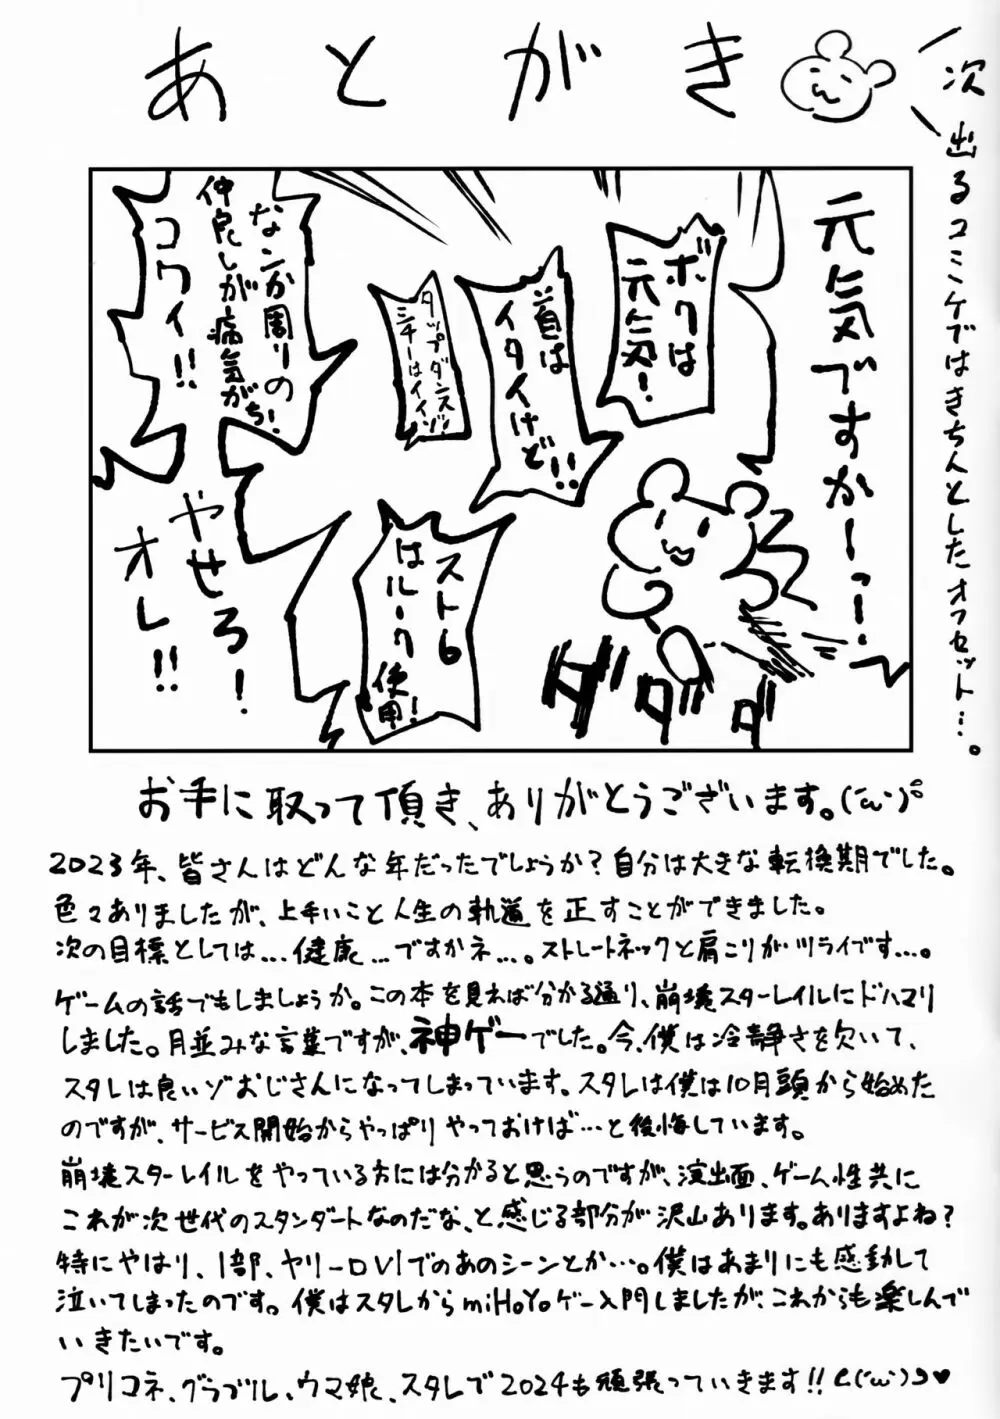 あとがき
次出るコミケではきちんとしたオフセット…。
元気ですかーっ!
ボクは
元気!
首は
イタイけど!!
タップダンス
シチーはイイゾ!
なンか周りの
仲良しが病気がち!
コワイ!!
スト6
はルーク
使用!
やせろ!
オレ!!
ダダダ
お手に取って頂き、ありがとうございます。(´ω`)
2023年、皆さんはどんな年だったでしょうか?自分は大きな転換期でした。
色々ありましたが、上手いこと人生の軌道を正すことができました。
次の目標としては…健康…ですかネ…。ストレートネックと肩こりがツライです…。
ゲームの話でもしましょうか。この本を見れば分かる通り、崩壊スターレイルにドハマリ
しました。月並みな言葉ですが、神ゲーでした。今、僕は冷静さを欠いて、
スタレは良いゾおじさんになってしまっています。スタレは僕は10月頭から始めた
のですが、サービス開始からやっぱりやっておけば…と後悔しています。
崩壊スターレイルをやっている方には分かると思うのですが、演出面、ゲーム性共に
これが次世代のスタンダートなのだな、と感じる部分が沢山あります。ありますよね?
特にやはり、1部、ヤリーロVIでのあのシーンとか…。僕はあまりにも感動して
泣いてしまったのです。僕はスタレからmiHoYoゲー入門しましたが、これからも楽しんで
いきたいです。
プリコネ、グラブル、ウマ娘、スタレで2024も頑張っていきます!!⊂(´ω`)⊃♥